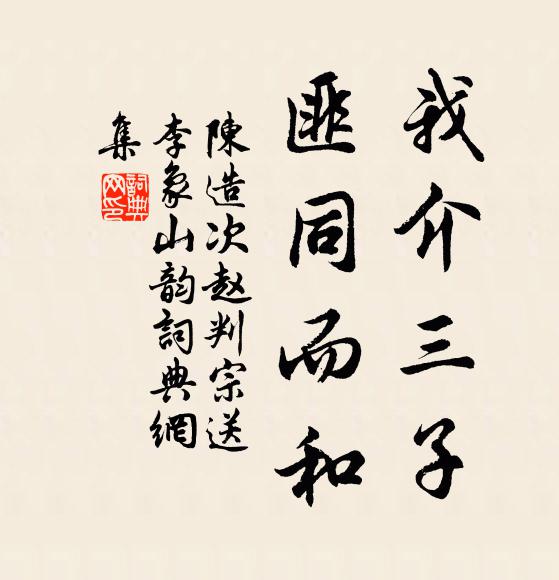 我介三子
匪同而和
陳造次赵判宗送
李象山韵詞典網
集
詞典
网印